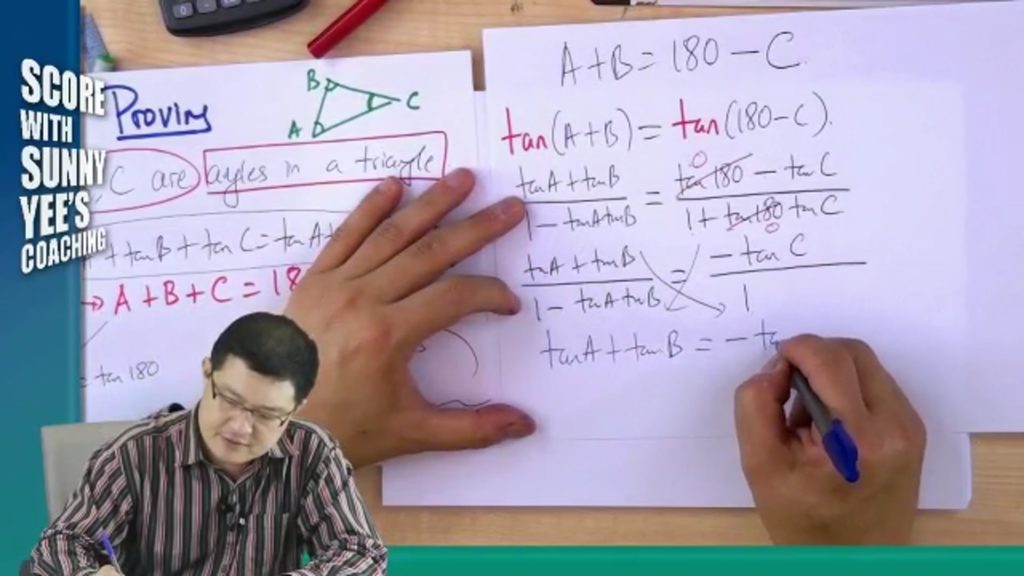 SCORE
WITH
SUNNY
YEE'S
COACHING
Proving
B
C
A
C are angles in a triangle
tan B + tan C = tan A
→ A + B + C = 18
= tan 180
A + B = 180 - C
tan(A + B) = tan(180 - C)
tan A + tan B / 1 - tan A tan B = tan 180 - tan C / 1 + tan 180 tan C
0
0
tan A + tan B / 1 - tan A tan B = - tan C / 1
tan A + tan B = - ta